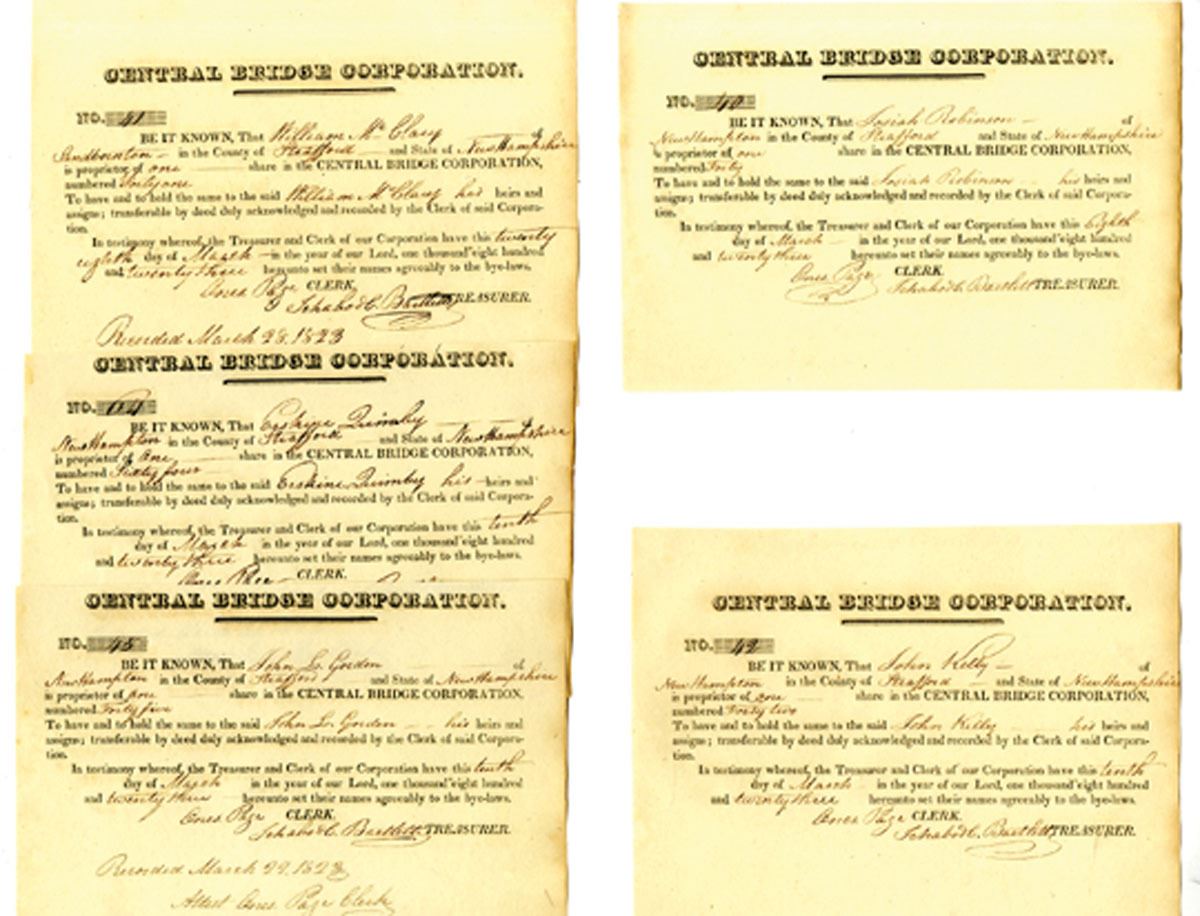 CENTRAL BRIDGE CORPORATION.
NO. 41
BE IT KNOWN, That William Mc Clary of
Sandbornton in the County of Strafford and State of New Hampshire
is proprietor of one share in the CENTRAL BRIDGE CORPORATION,
numbered Forty one
To have and to hold the same to the said William Mc Clary his heirs and
assigns; transferable by deed duly acknowledged and recorded by the Clerk of said Corpora-
tion.
In testimony whereof, the Treasurer and Clerk of our Corporation have this twenty
eighth day of March in the year of our Lord, one thousand eight hundred
and twenty three hereunto set their names agreeably to the bye-laws.
Page CLERK,
Ichabod C. Bartlett TREASURER.
Recorded March 28, 1823
CENTRAL BRIDGE CORPORATION.
NO. 64
BE IT KNOWN, That Erskine Quimby of
New Hampton in the County of Strafford and State of New Hampshire
is proprietor of one share in the CENTRAL BRIDGE CORPORATION,
numbered Sixty four
To have and to hold the same to the said Erskine Quimby his heirs and
assigns; transferable by deed duly acknowledged and recorded by the Clerk of said Corpora-
tion.
In testimony whereof, the Treasurer and Clerk of our Corporation have this tenth
day of March in the year of our Lord, one thousand eight hundred
and twenty three hereunto set their names agreeably to the bye-laws.
Page CLERK.
CENTRAL BRIDGE CORPORATION.
NO. 45
BE IT KNOWN, That John L. Gordon of
New Hampton in the County of Strafford and State of New Hampshire
is proprietor of one share in the CENTRAL BRIDGE CORPORATION.
numbered Forty five
To have and to hold the same to the said John L. Gordon his heirs and
assigns; transferable by deed duly acknowledged and recorded by the Clerk of said Corpora-
tion.
In testimony whereof, the Treasurer and Clerk of our Corporation have this tenth
day of March in the year of our Lord, one thousand eight hundred
and twenty three hereunto set their names agreeably to the bye-laws.
Page CLERK.
Ichabod C. Bartlett TREASURER.
Recorded March 22, 1823
Attest Page Clerk
CENTRAL BRIDGE CORPORATION.
NO. 40
BE IT KNOWN, That Josiah Robinson of
New Hampton in the County of Strafford and State of New Hampshire
is proprietor of one share in the CENTRAL BRIDGE CORPORATION,
numbered Forty
To have and to hold the same to the said Josiah Robinson his heirs and
assigns; transferable by deed duly acknowledged and recorded by the Clerk of said Corpora-
tion.
In testimony whereof, the Treasurer and Clerk of our Corporation have this Eighth
day of March in the year of our Lord, one thousand eight hundred
and twenty three hereunto set their names agreeably to the bye-laws.
Page CLERK.
Ichabod C. Bartlett TREASURER.
CENTRAL BRIDGE CORPORATION.
NO. 42
BE IT KNOWN, That John Kelly of
New Hampton in the County of Strafford and State of New Hampshire
is proprietor of one share in the CENTRAL BRIDGE CORPORATION,
numbered Forty two
To have and to hold the same to the said John Kelly his heirs and
assigns; transferable by deed duly acknowledged and recorded by the Clerk of said Corpora-
tion.
In testimony whereof, the Treasurer and Clerk of our Corporation have this tenth
day of March in the year of our Lord, one thousand eight hundred
and twenty three hereunto set their names agreeably to the bye-laws.
Page CLERK.
Ichabod C. Bartlett TREASURER.